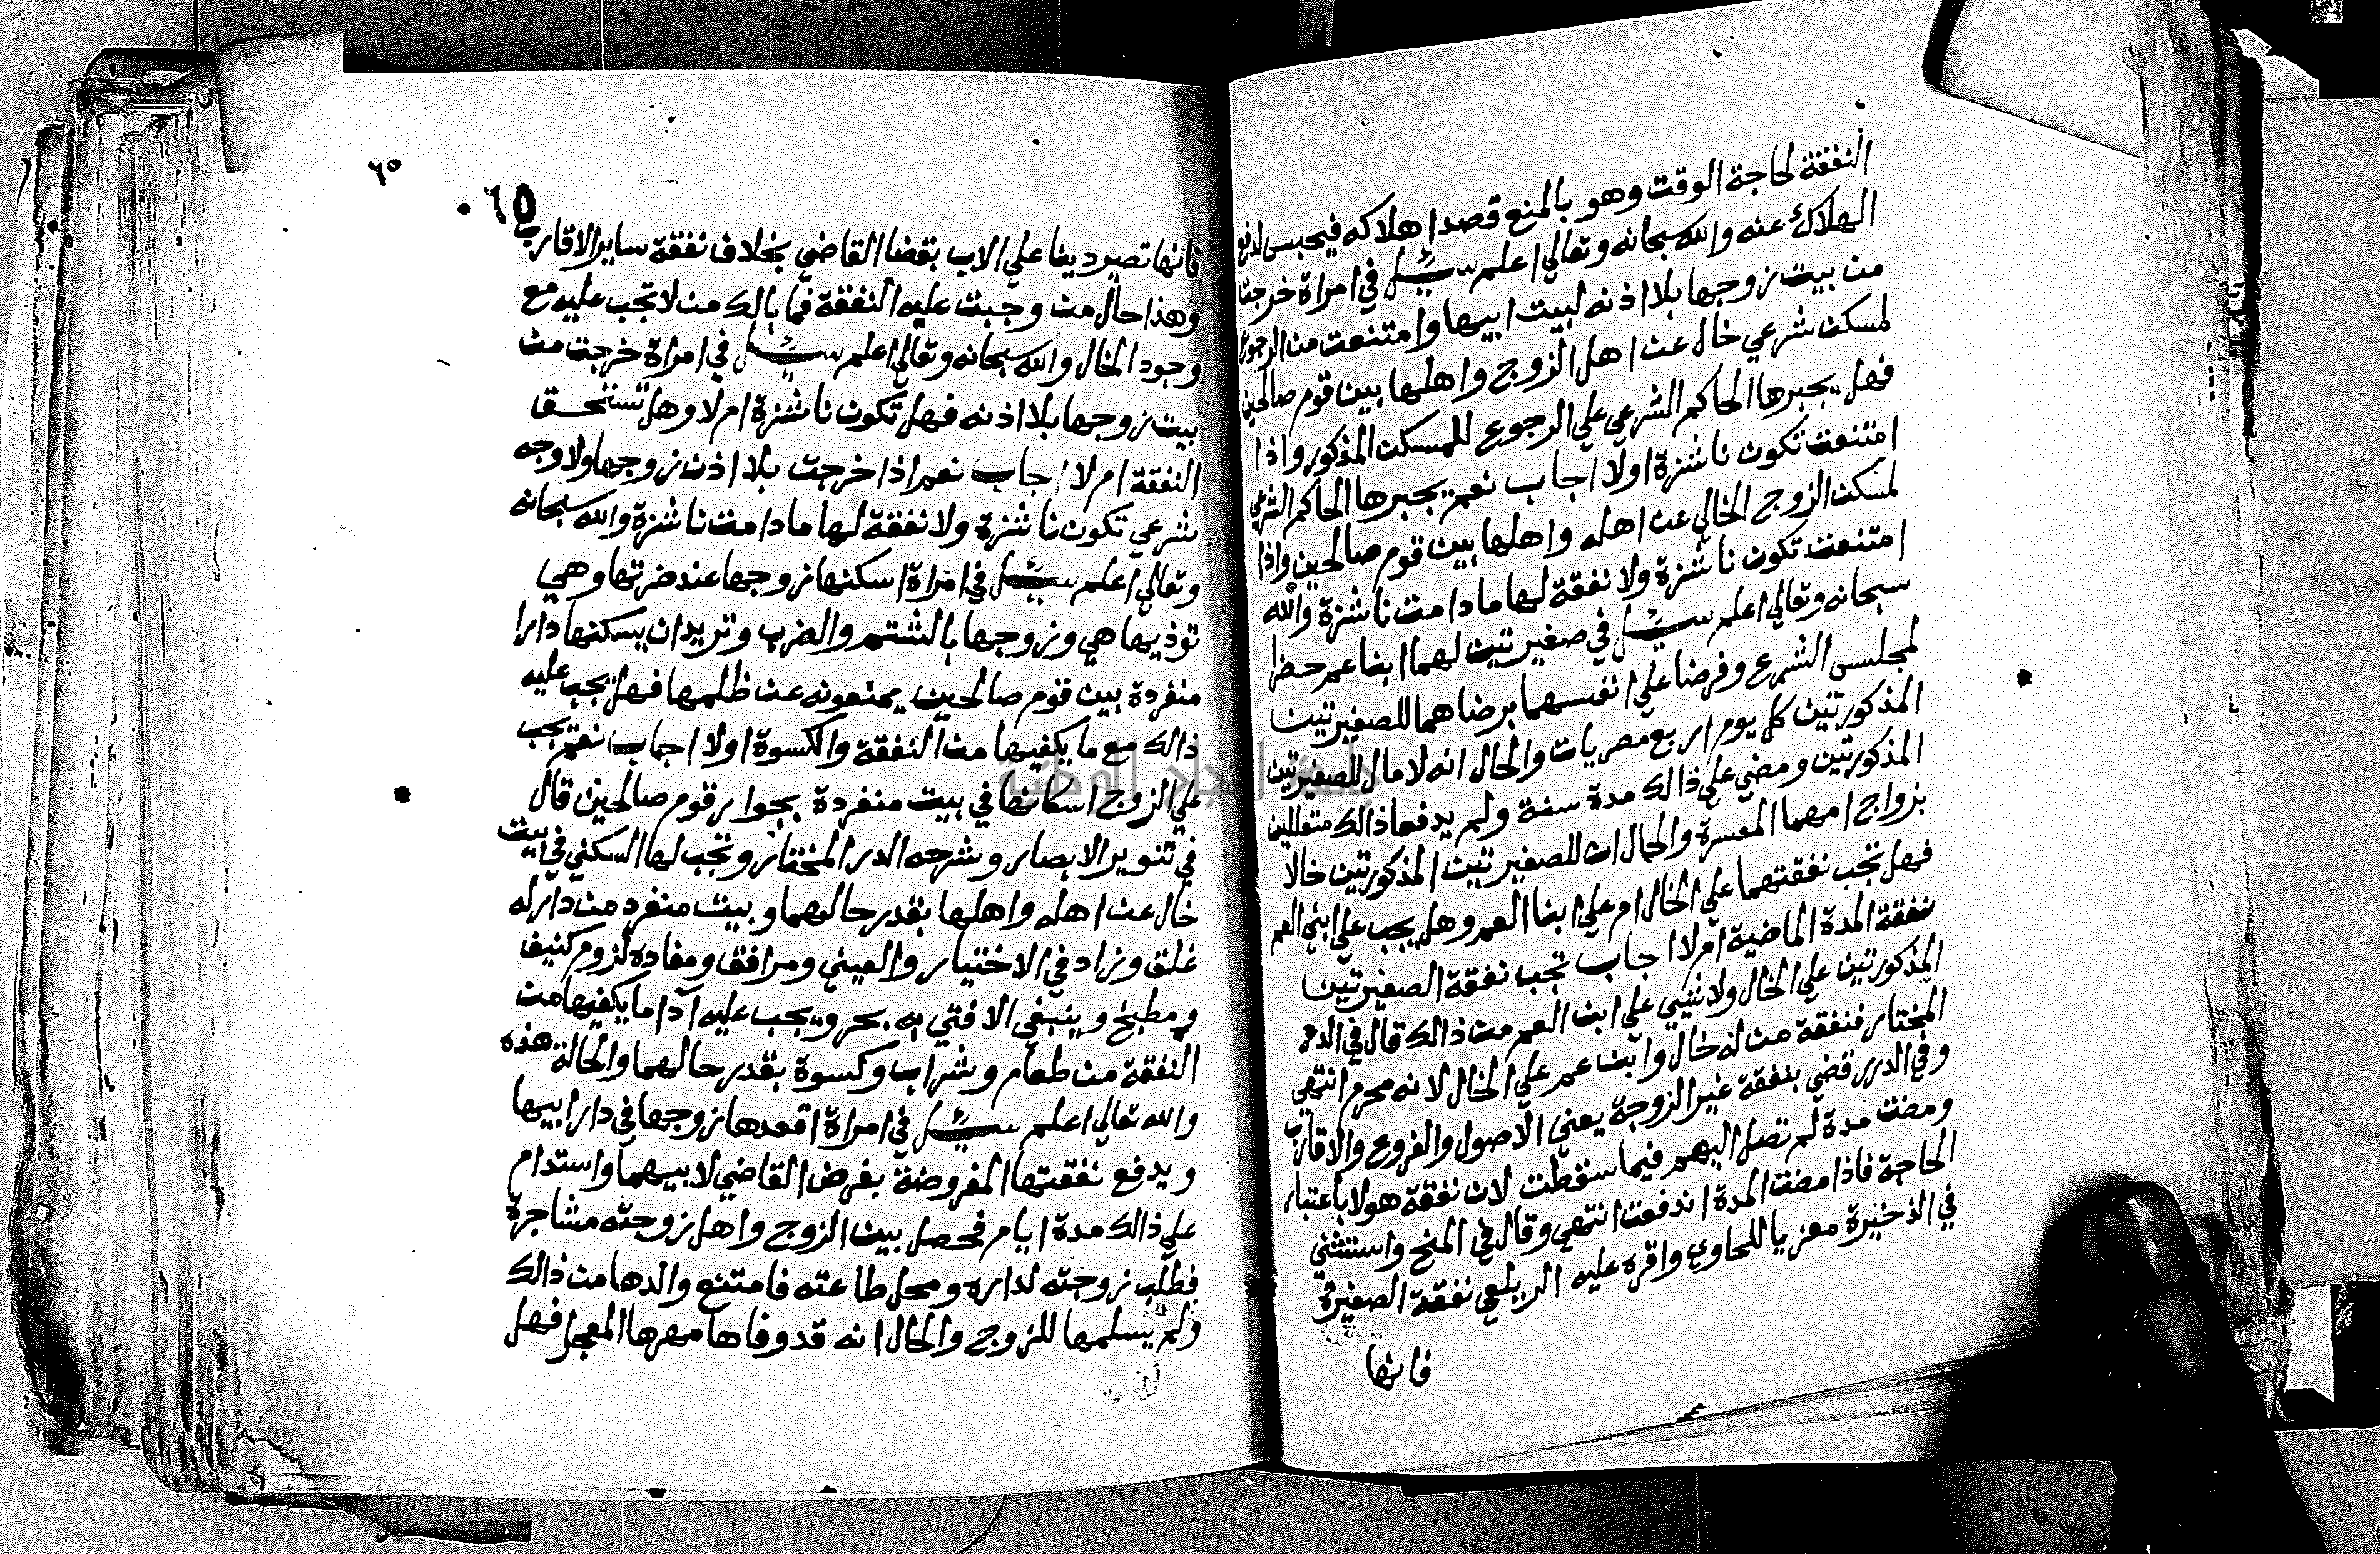 النفقة لحاجة الوقت وهو بالمنع قصد اهلاكه فيحبس لدفع
الهلاك عنه والله سبحانه وتعالي اعلم سيل في امراة خرجت
من بيت زوجها بلا اذنه لبيت ابيها وامتنعت من الرجوع
لمسكن شرعي خال عن اهل الزوج واهلها بين قوم صالحين
فهل يجبرها الحاكم الشرعي علي الرجوع للمسكن المذكور واذا
امتنعت تكون ناشزة اولا اجاب نعم يجبرها الحاكم الشرعي
لمسكن الزوج الخالي عن اهله واهلها بين قوم صالحين واذا
امتنعت تكون ناشزة ولا نفقة لها ما دامت ناشزة والله
سبحانه وتعالي اعلم سيل في صغيرتين لهما ابنا عم حضرا
لمجلس الشرع وفرضا علي انفسهما برضاهما للصغيرتين
المذكورتين كل يوم اربع مصريات والحال انه لا مال للصغيرتين
المذكورتين ومضي علي ذالك مدة سنة ولم يدفعا ذالك متعللين
بزواج امهما المعسرة والحال ان للصغيرتين المذكورتين خالا
فهل تجب نفقتهما علي الخال ام علي ابنا العم وهل يجب علي ابني العم
نفقة المدة الماضية ام لا اجاب تجب نفقة الصغيرتين
المذكورتين علي الخال ولا شيي علي ابن العم من ذالك قال في الدر
المختار فنفقة من له خال وابن عم علي الخال لانه محرم انتهي
وفي الدرر قضي بنفقة غير الزوجة يعني الاصول والفروع والاقارب
ومضت مدة لم تصل اليهم فيها سقطت لان نفقة هولا باعتبار
الحاجة فاذا مضت المدة اندفعت انتهي وقال في المنح واستثني
في الذخيرة معزيا للحاوي واقره عليه الزيلعي نفقة الصغيرة
فانها
٦٥
٦٥
فانها تصير دينا علي الاب بقضا القاضي بخلاف نفقة ساير الاقارب
وهذا حال من وجبت عليه النفقة فما بالك من لا تجب عليه مع
وجود الخال والله سبحانه وتعالي اعلم سيل في امراة خرجت من
بيت زوجها بلا اذنه فهل تكون ناشزة ام لا وهل تستحق
النفقة ام لا اجاب نعم اذا خرجت بلا اذن زوجها ولا وجه
شرعي تكون ناشزة ولا نفقة لها ما دامت ناشزة والله سبحانه
وتعالي اعلم سيل في امراة اسكنها زوجها عند ضرتها وهي
توذيها هي وزوجها بالشتم والضرب وتريد ان يسكنها دارا
منفردة بين قوم صالحين يمنعونه عن ظلمها فهل يجب عليه
ذالك مع ما يكفيها من النفقة والكسوة اولا اجاب نعم يجب
علي الزوج اسكانها في بيت منفردة بجوار قوم صالحين قال
في تنوير الابصار وشرحه الدر المختار وتجب لها السكني في بيت
خال عن اهله واهلها بقدر حالهما وبيت منفرد من دار له
غلق وزاد في الاختيار والعيني ومرافق ومفاده لزوم كنيف
ومطبخ وينبغي الافتي به بحر ويجب عليه ادا ما يكفيها من
النفقة من طعام وشراب وكسوة بقدر حالهما والحالة هذه
والله تعالي اعلم سيل في امراة اقعدها زوجها في دار ابيها
ويدفع نفقتها المفروضة بفرض القاضي لابيهما واستدام
علي ذالك مدة ايام فحصل بين الزوج واهل زوجته مشاجرة
فطلب زوجته لداره ومحل طاعته فامتنع والدها من ذالك
ولم يسلمها للزوج والحال انه قد وفاها مهرها المعجل فهل